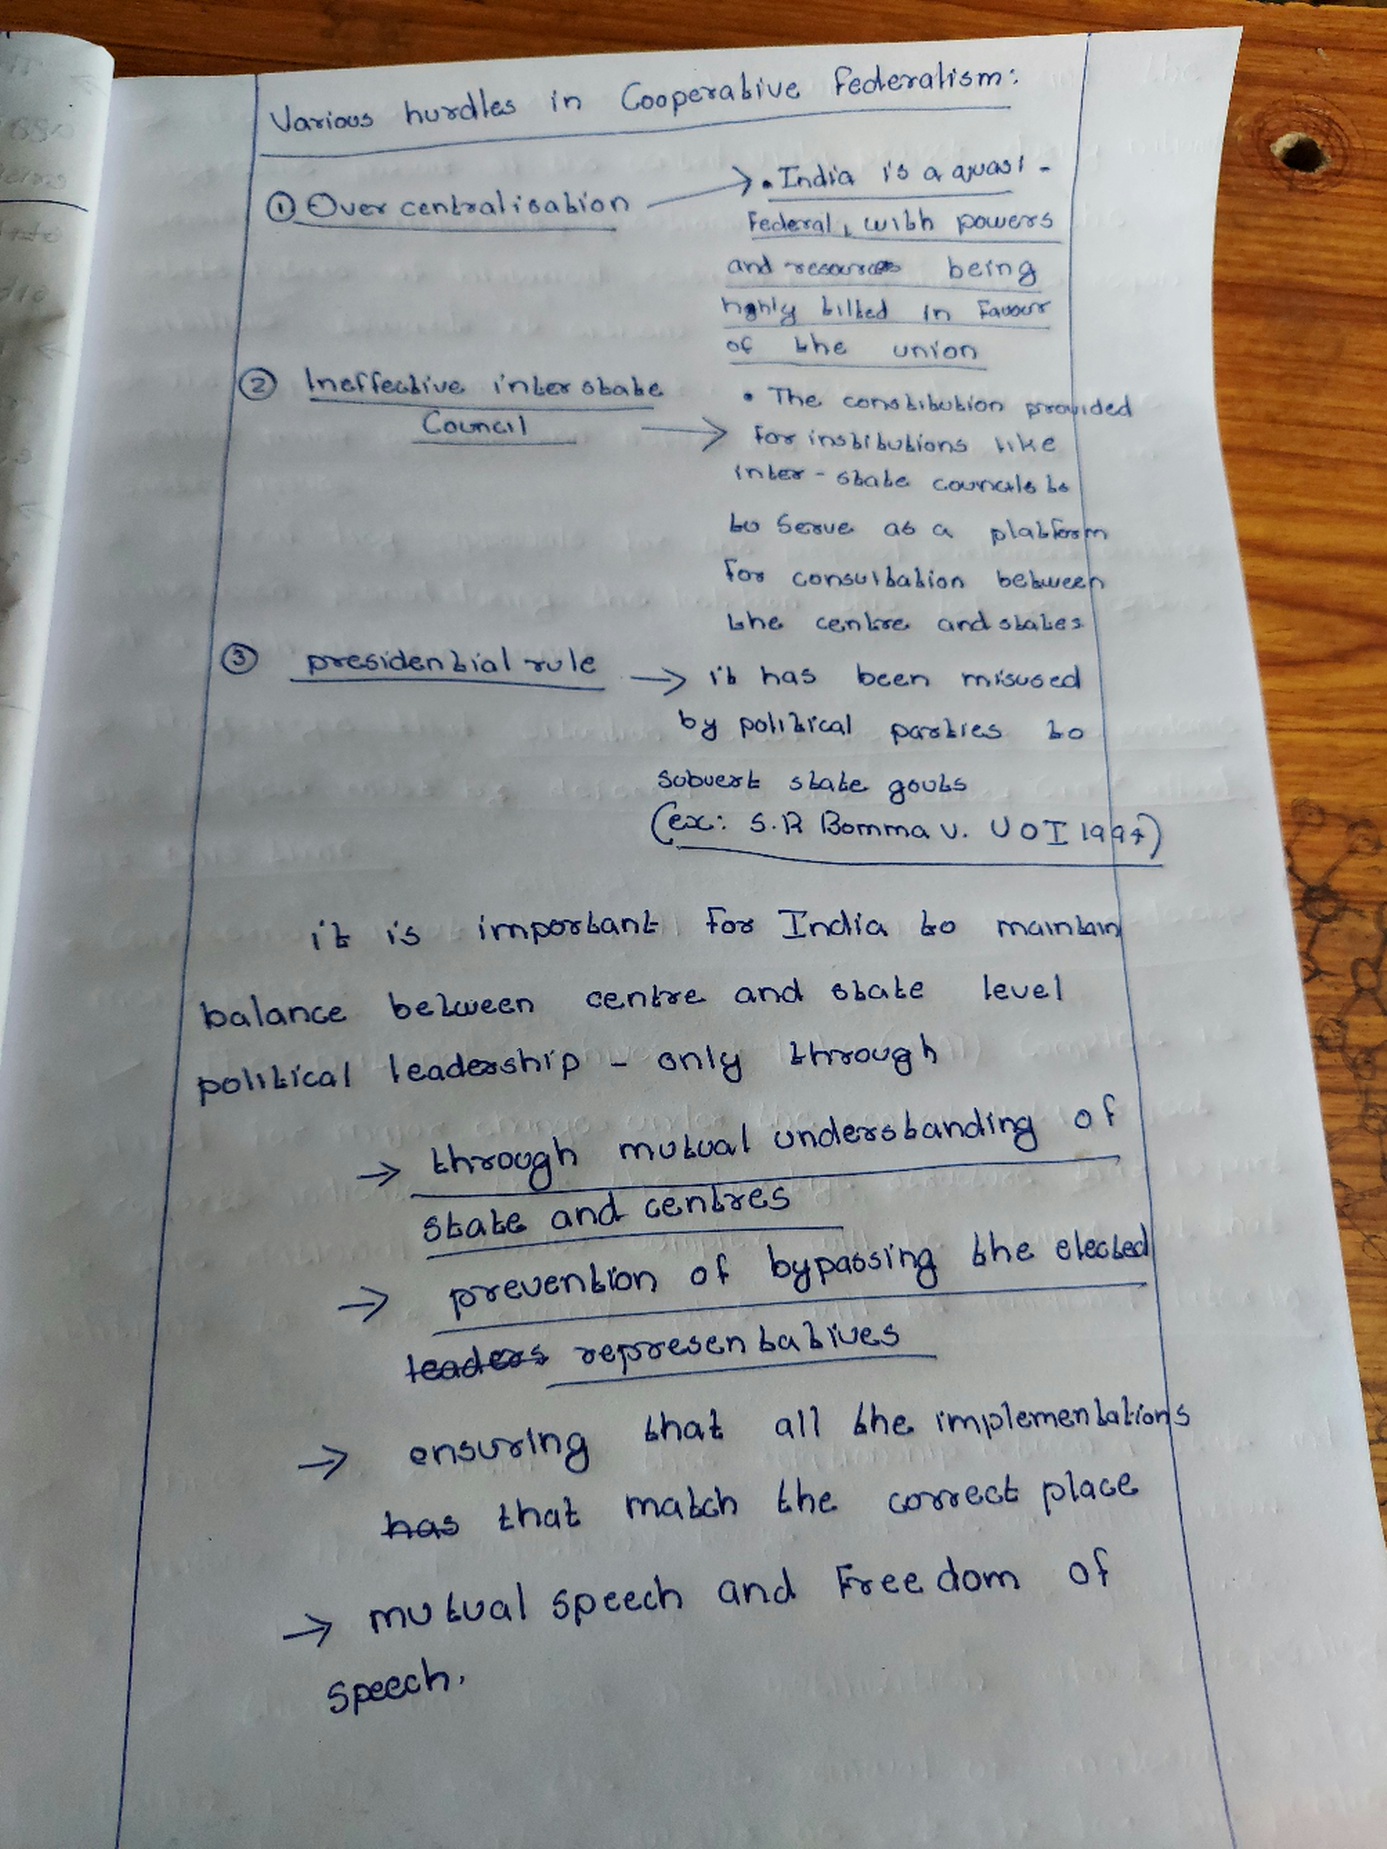 Various hurdles in Cooperative Federalism:
① Over centralisation → • India is a quasi -
Federal, with powers
and resources being
highly tilted in Favour
of the union
② Ineffective inter state
Council →
• The constitution provided
For institutions like
inter - state councils to
to Serve as a platform
For consultation between
the centre and states
③ presidential rule → it has been misused
by political parties to
subvert state govts
(ex: S.R Bomma v. UOI 1994)
it is important For India to maintain
balance between centre and state level
political leadership - only through
→ through mutual understanding of
state and centres
→ prevention of bypassing the elected
leaders representatives
→ ensuring that all the implementations
has that match the correct place
→ mutual speech and Freedom of
speech.